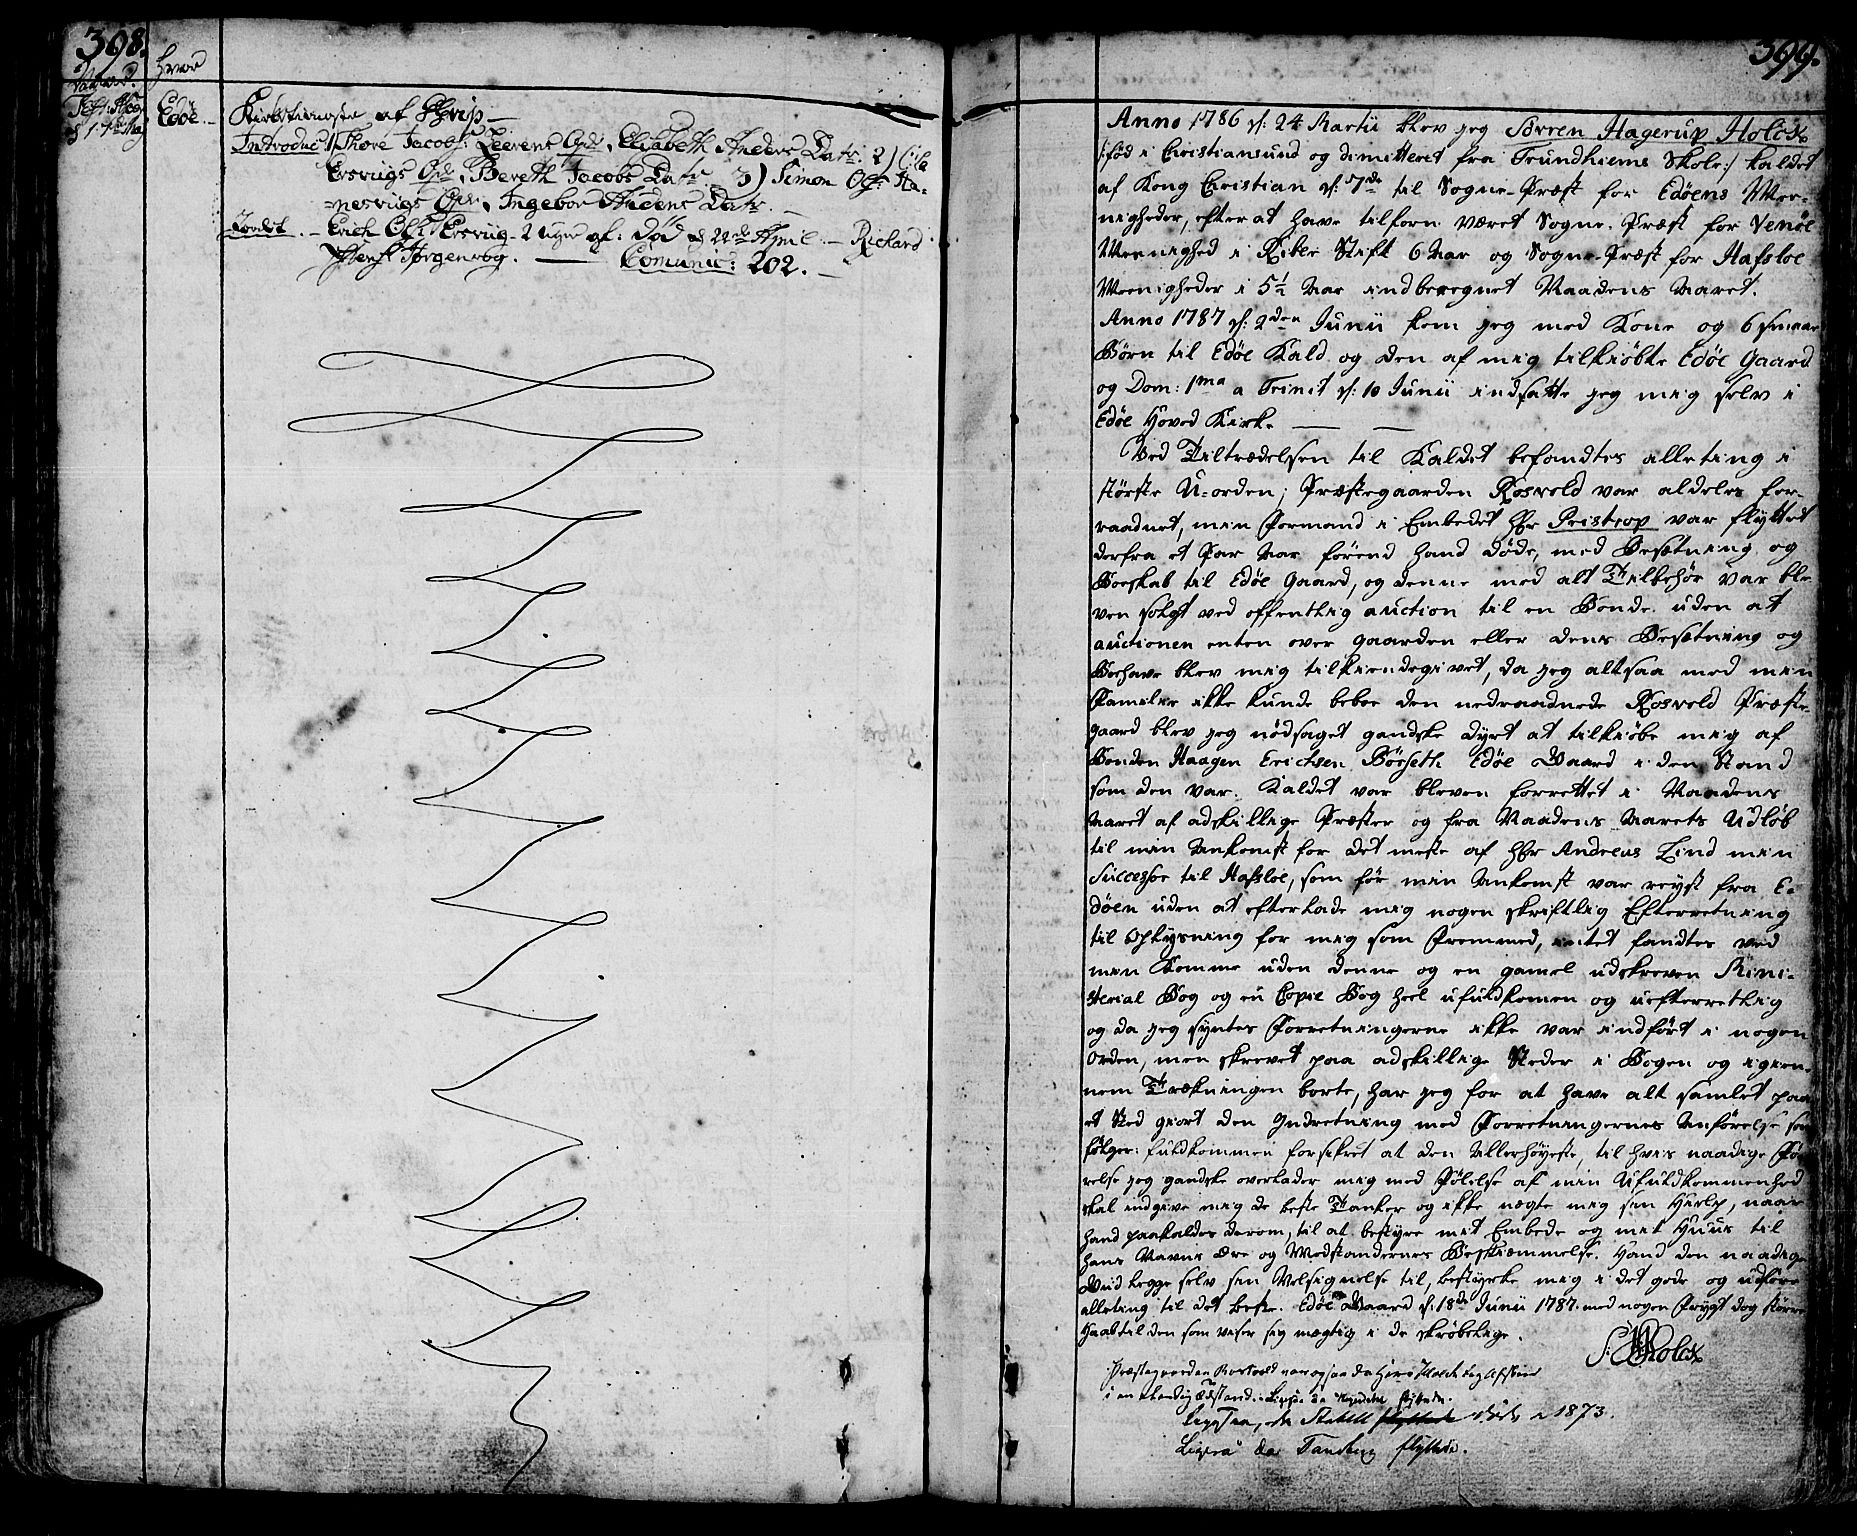 398.
Hvor
Edöe.
Kirketieneste af
Introduc: 1/ Thore Jacobs: Leerens Qde, Elisabeth Anders Datr: 2)
Ersvigs Qde, Bereth Jacobs Datr. 3) Simon Ols: Ha-
nesvigs Qde, Ingebor Anders Datr.
Jordet. – Erich Ols: Ersvig 2 uger gl: død d 22de April. – Richard
Jørgenvog. — Comunic: 202. –
399.
Anno 1786 d: 24 Martii blev jeg Sørren Hagerup Holck
/:fød i Christiansund og dimitteret fra Trundhiems Skole:/ kaldet
af Kong Christian d: 7de til Sogne-Præst for Edøens Mee-
nigheder, efter at have tilforn været Sogne-Præst for Venøe
Meenighed i Ribe Stift 6 Aar og Sogne-Præst for Hafsloe
Meenigheder i 5½ Aar indberegnet Naadens Aaret.
Anno 1787 d: 2den Junii kom jeg med Kone og 6 smaae
Børn til Edøe Kald og den af mig tilkiøbte Edøe Gaard
og Dom: 1ma a Trinit d: 10 Junii indsatte jeg mig selv i
Edøe Hoved Kirke. — —
Ved Tiltrædelsen til Kaldet befandtes alleting i
største U-orden; Præstegaarden Rosvold var aldeles for-
raadnet, min Formand i Embedet Hr Pristrop var flyttet
derfra et Par Aar førend hand døde, med Besætning og
Boeskab til Edøe Gaard, og denne med alt Tilbehør var ble-
ven solgt ved offentlig auction til en Bonde uden at
auctionen enten over gaarden eller dens Besætning og
Boehave blev mig tilkiendegivet, da jeg altsaa med min
Familie ikke kunde beboe den nedraadnede Rosvold Præste-
gaard blev jeg nødsaget gandske dyrt at tilkiøbe mig af
Bonden Haagen Erichsen Børseth Edøe Gaard i den Stand
som den var. Kaldet var bleven forrettet i Naadens
Aaret af adskillige Præster og fra Naadens Aarets Udløb
til min Ankomst for det meste af Hr Andreas Lind min
Successor til Hafsloe, som før min Ankomst var reyst fra E-
døen uden at efterlade mig nogen skriftlig Efterretning
til Oplysning for mig som Fremmed, intet fandtes ved
min Komme uden denne og en gamel udskreven Mini-
sterial Bog og en Copie Bog heel ufuldkomen og uefterretlig
og da jeg syntes Forretningerne ikke var indført i nogen
Orden, men skrevet paa adskillige Steder i Bogen og igien-
nem Trækningen borte, har jeg for at have alt samlet paa
et Sted giort den Indretning med Forretningernes Anførelse som
følger: fuldkommen forsikret at den Allerhøyeste, til hvis naadige Fø-
relse jeg gandske overlader mig med Følelse af min Ufuldkommenhed
skal indgive mig de beste Tanker og ikke nægte mig sin Hielp, naar
hand paakaldes derom, til at bestyre mit Embede og mit Huus til
hans Navns Ære og Modstandernes Beskiæmmelse. Hand den naadige
Gud legge selv sin Velsignelse til, bestyrke mig i det gode og udføre
alleting til det beste. Edøe Gaard d: 18de Junii 1787. med nogen Frygt dog større
Haab til den som viser sig mægtig i de skrøbelige.
S: H Holck
Præstegaarden Rosvold var ogsaa da Herr Holck
i en elendig
da Stabell flyttede døde i 1873.
da Tandberg flyttede.